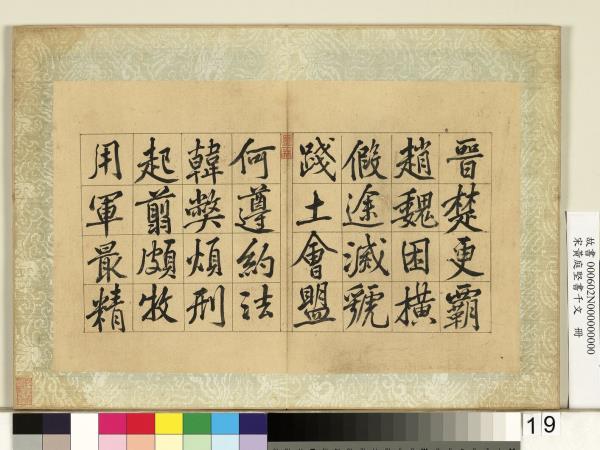 晉楚更霸
趙魏困橫
假途滅虢
踐土會盟
何遵約法
韓弊煩刑
起翦頗牧
用軍最精
故書 000602N000000000
宋黃庭堅書千文 冊
19